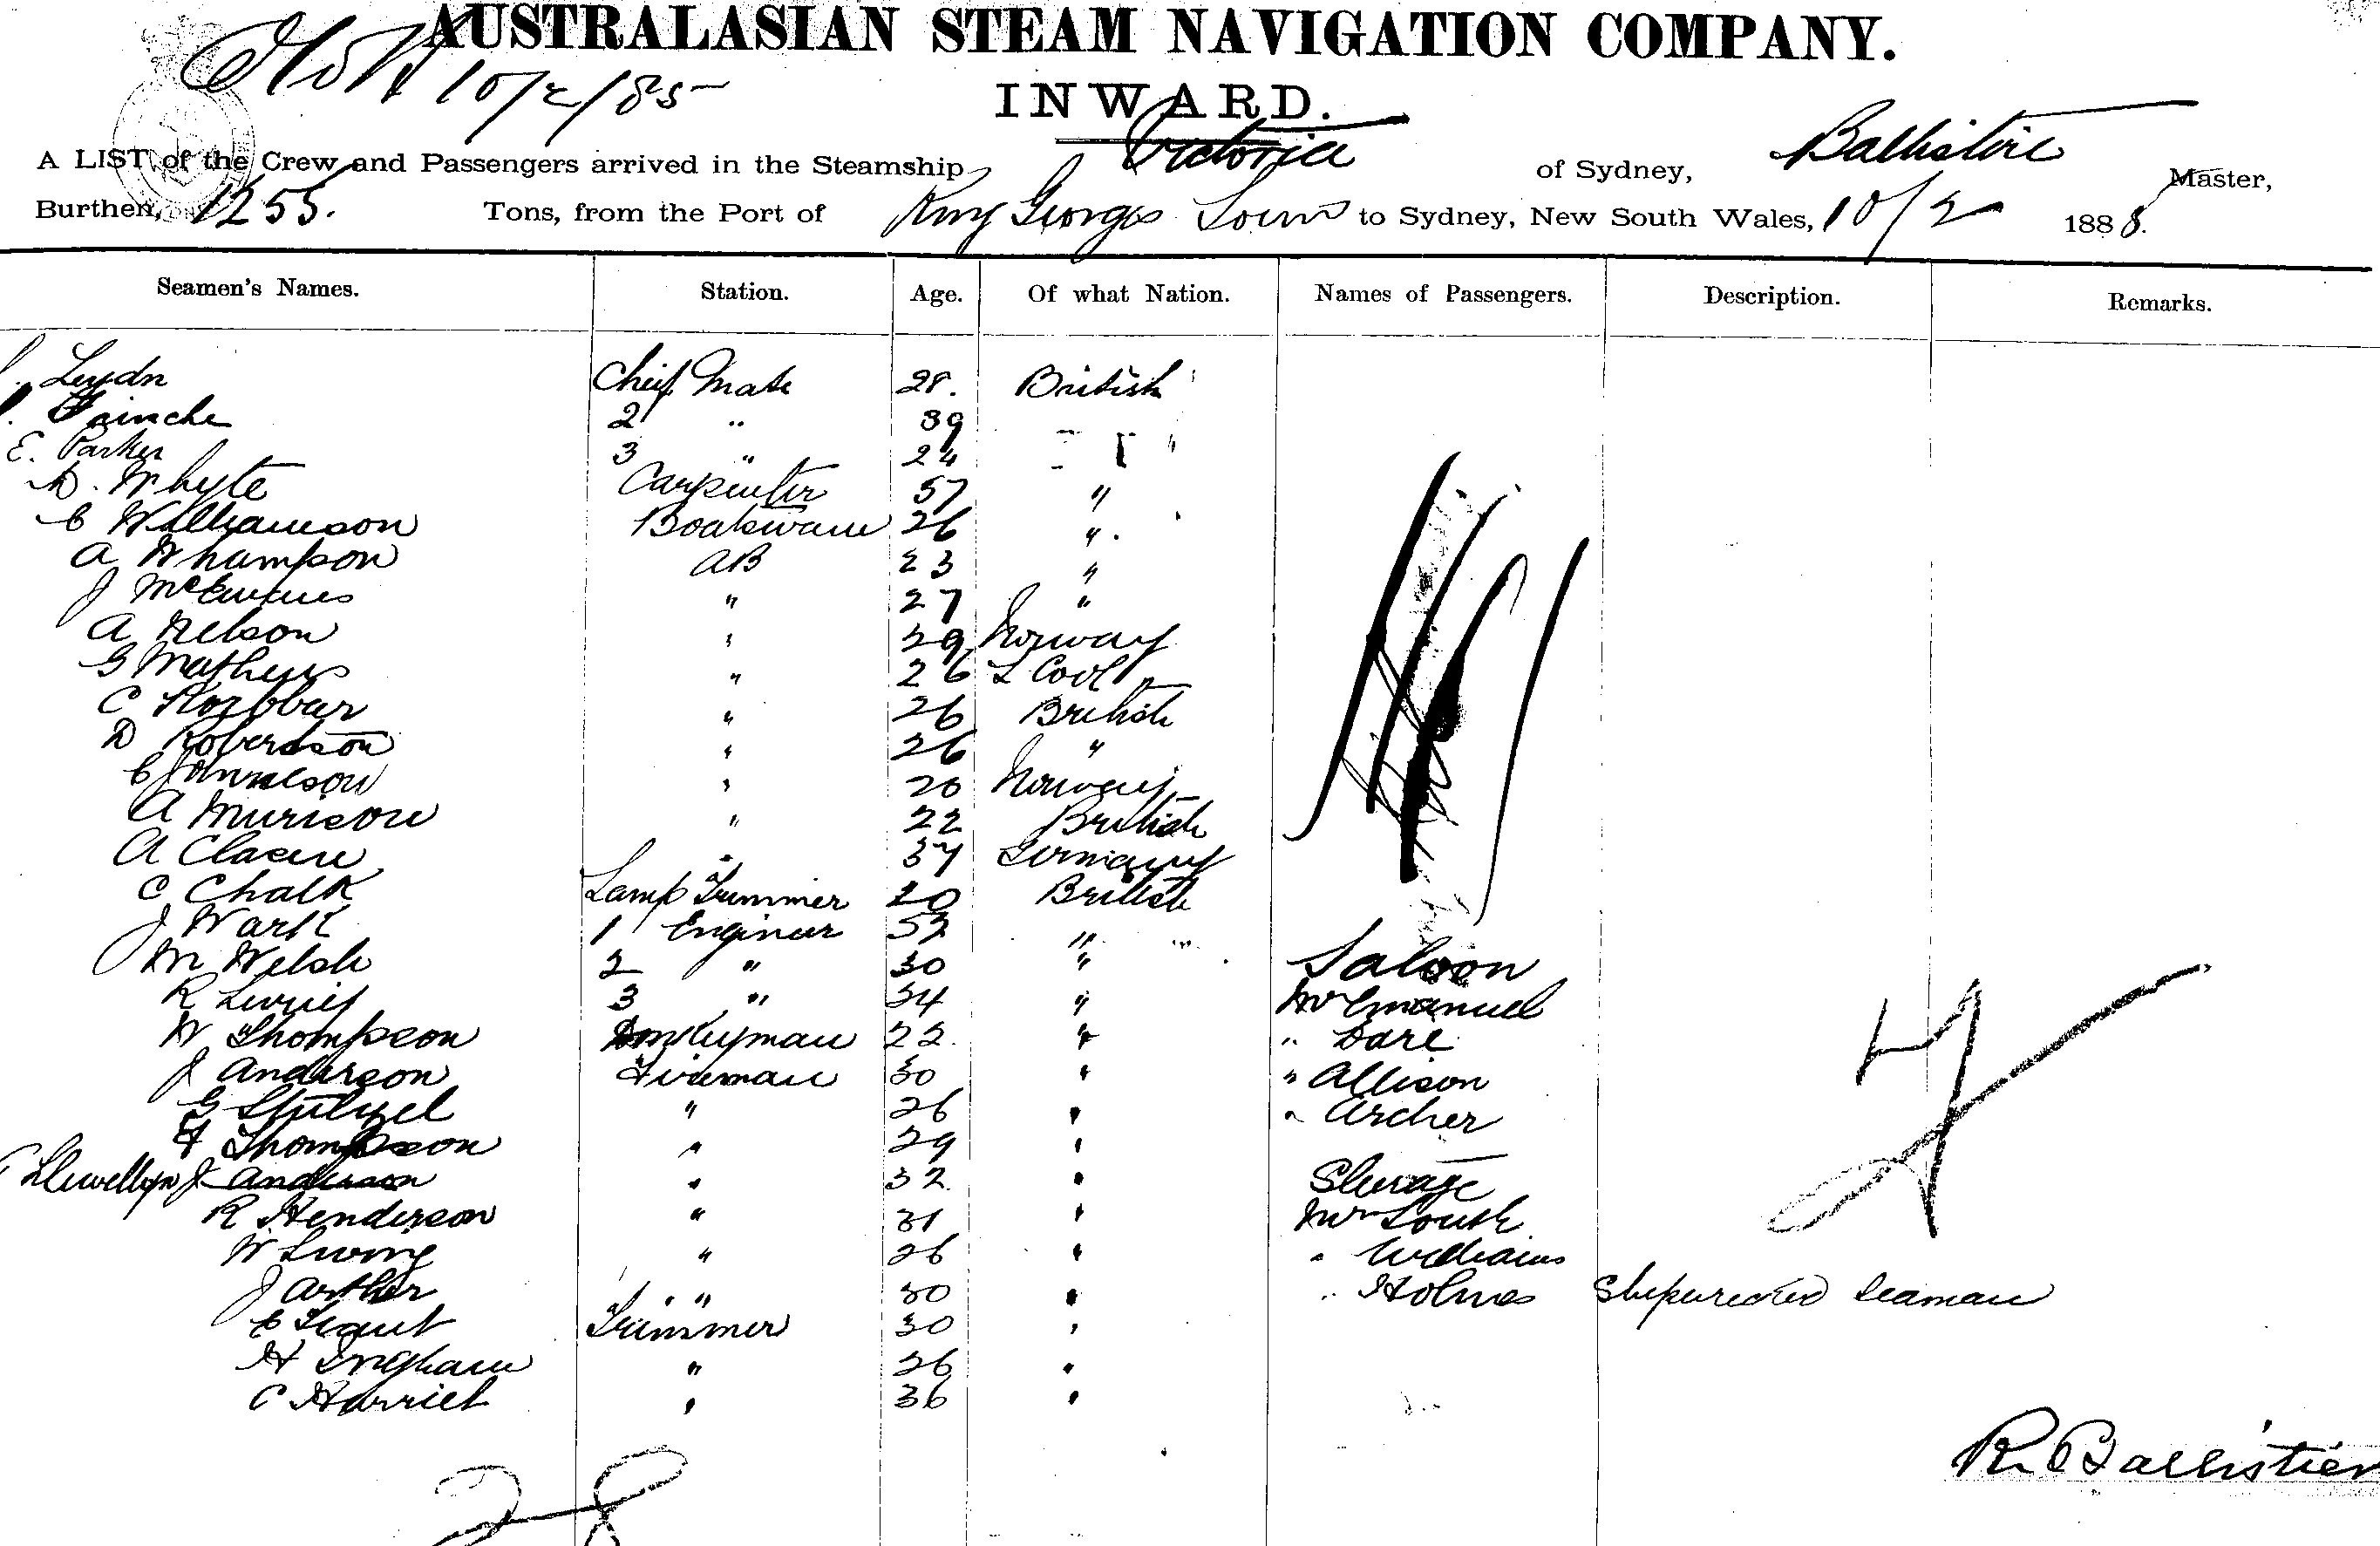 AUSTRALASIAN STEAM NAVIGATION COMPANY.
10/2/85
INWARD.
A LIST of the Crew and Passengers arrived in the Steamship Victoria of Sydney, Master,
Burthen, 1255. Tons, from the Port of King Georges Sound to Sydney, New South Wales, 10/2 1888.
Seamen's Names. Station. Age. Of what Nation. Names of Passengers. Description. Remarks.
Chief Mate 28. British
2 " 39
E. Parker 3 " 24 "
D. Whyte Carpenter 57 "
C Williamson Boatswain 26 "
A Whampson AB 23 "
J " 27 "
A Nelson " 29 Norway
G Mathews " 26 L Cool
C " 26 British
D Robertson " 26 "
C " 20 Norway
A Murison " 22 British
A Clasen " 37 Germany
C Chalk Lamp Trimmer 20 British
J Wark 1 Engineer 52 "
M Welsh 2 " 30 " Saloon
R 3 " 34 " Mr Emanuel
W Thompson Donkeyman 22 " " Dare
J Anderson Fireman 30 " " Allison
G " 26 " " Archer
F Thompson " 29 "
Llewellyn J Anderson " 32 " Steerage
R Henderson " 31 " Mr South
W " 26 " " Williams
J Arthur " 30 " " Holmes Shipwrecked Seaman
E Trimmer 30 "
H Ingham " 26 "
C Harriet " 36 "
R Ballistier
28